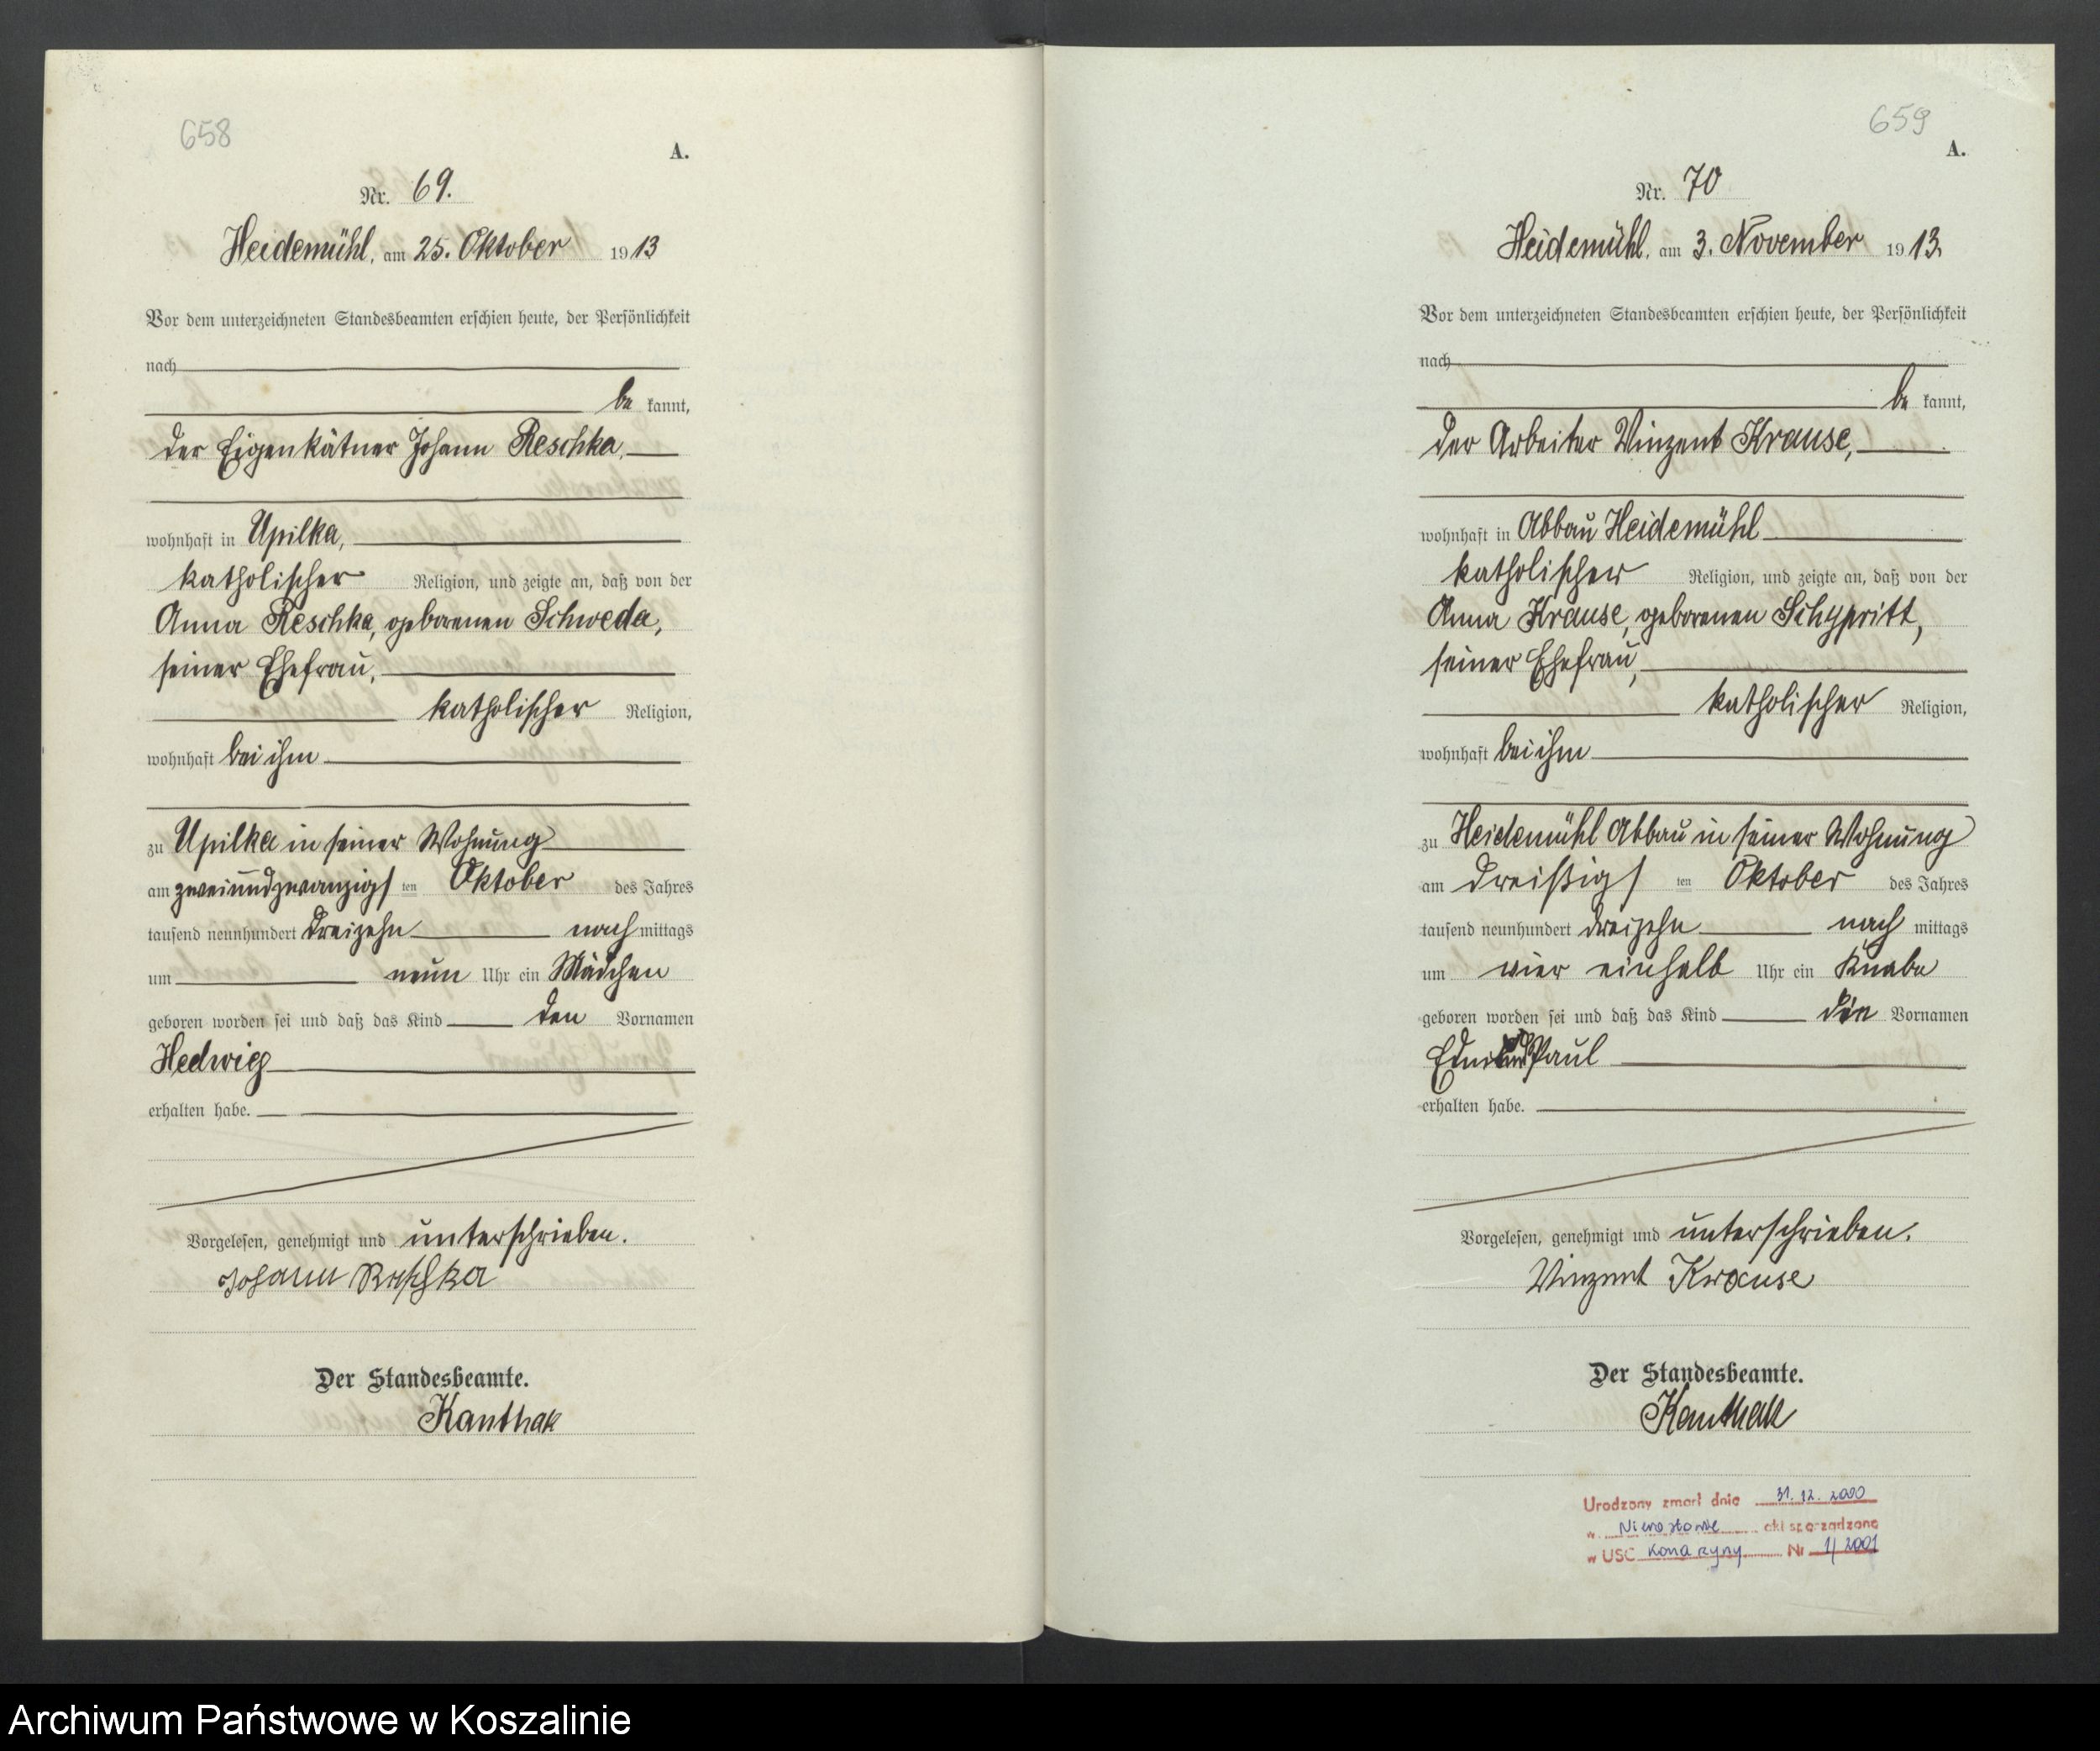 658
A.
Nr. 69.
Heidemühl, am 25. Oktober 1913
Vor dem unterzeichneten Standesbeamten erschien heute, der Persönlichkeit
nach
be kannt,
der Eigenkätner Johann Reschka,
wohnhaft in Upilka,
katholischer Religion, und zeigte an, daß von der
Anna Reschka, geborenen Schweda,
seiner Ehefrau,
katholischer Religion,
wohnhaft bei ihm
zu Upilka in seiner Wohnung
am zweiundzwanzigsten Oktober des Jahres
tausend neunhundert dreizehn nach mittags
um neun Uhr ein Mädchen
geboren worden sei und daß das Kind den Vornamen
Hedwig
erhalten habe.
Vorgelesen, genehmigt und unterschrieben.
Johann Reschka
Der Standesbeamte.
Kanthak
659
A.
Nr. 70
Heidemühl, am 3. November 1913.
Vor dem unterzeichneten Standesbeamten erschien heute, der Persönlichkeit
nach
be kannt,
der Arbeiter Vinzent Krause,
wohnhaft in Abbau Heidemühl
katholischer Religion, und zeigte an, daß von der
Anna Krause, geborenen Schypritt,
seiner Ehefrau,
katholischer Religion,
wohnhaft bei ihm
zu Heidemühl Abbau in seiner Wohnung
am dreißigsten Oktober des Jahres
tausend neunhundert dreizehn nach mittags
um vier einhalb Uhr ein Knabe
geboren worden sei und daß das Kind die Vornamen
Paul
erhalten habe.
Vorgelesen, genehmigt und unterschrieben.
Vinzent Krause
Der Standesbeamte.
Kanthak
Urodzony zmarł dnia 31.12.2000
w akt sporządzono
w USC Konarzyny Nr 1/2001
Archiwum Państwowe w Koszalinie